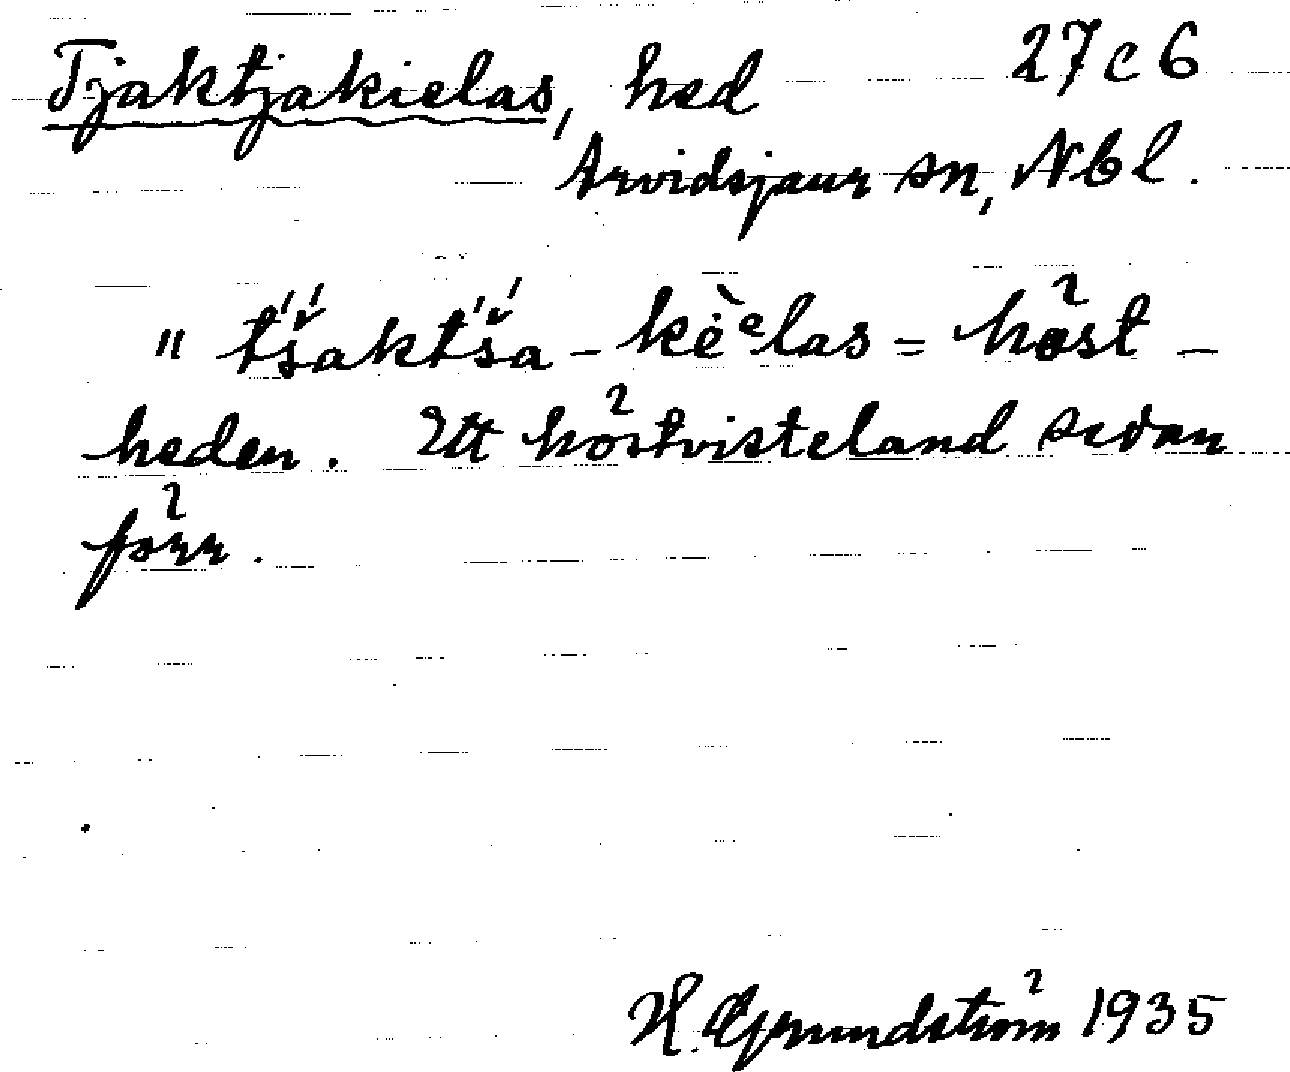 Tjaktjakielas, hed 27c6
Arvidsjaur sn, Nbl.
" t́š́akt́š́a - kė̀ᵉlas = höst-
heden. Ett höstvisteland sedan
förr.
H. Grundström 1935